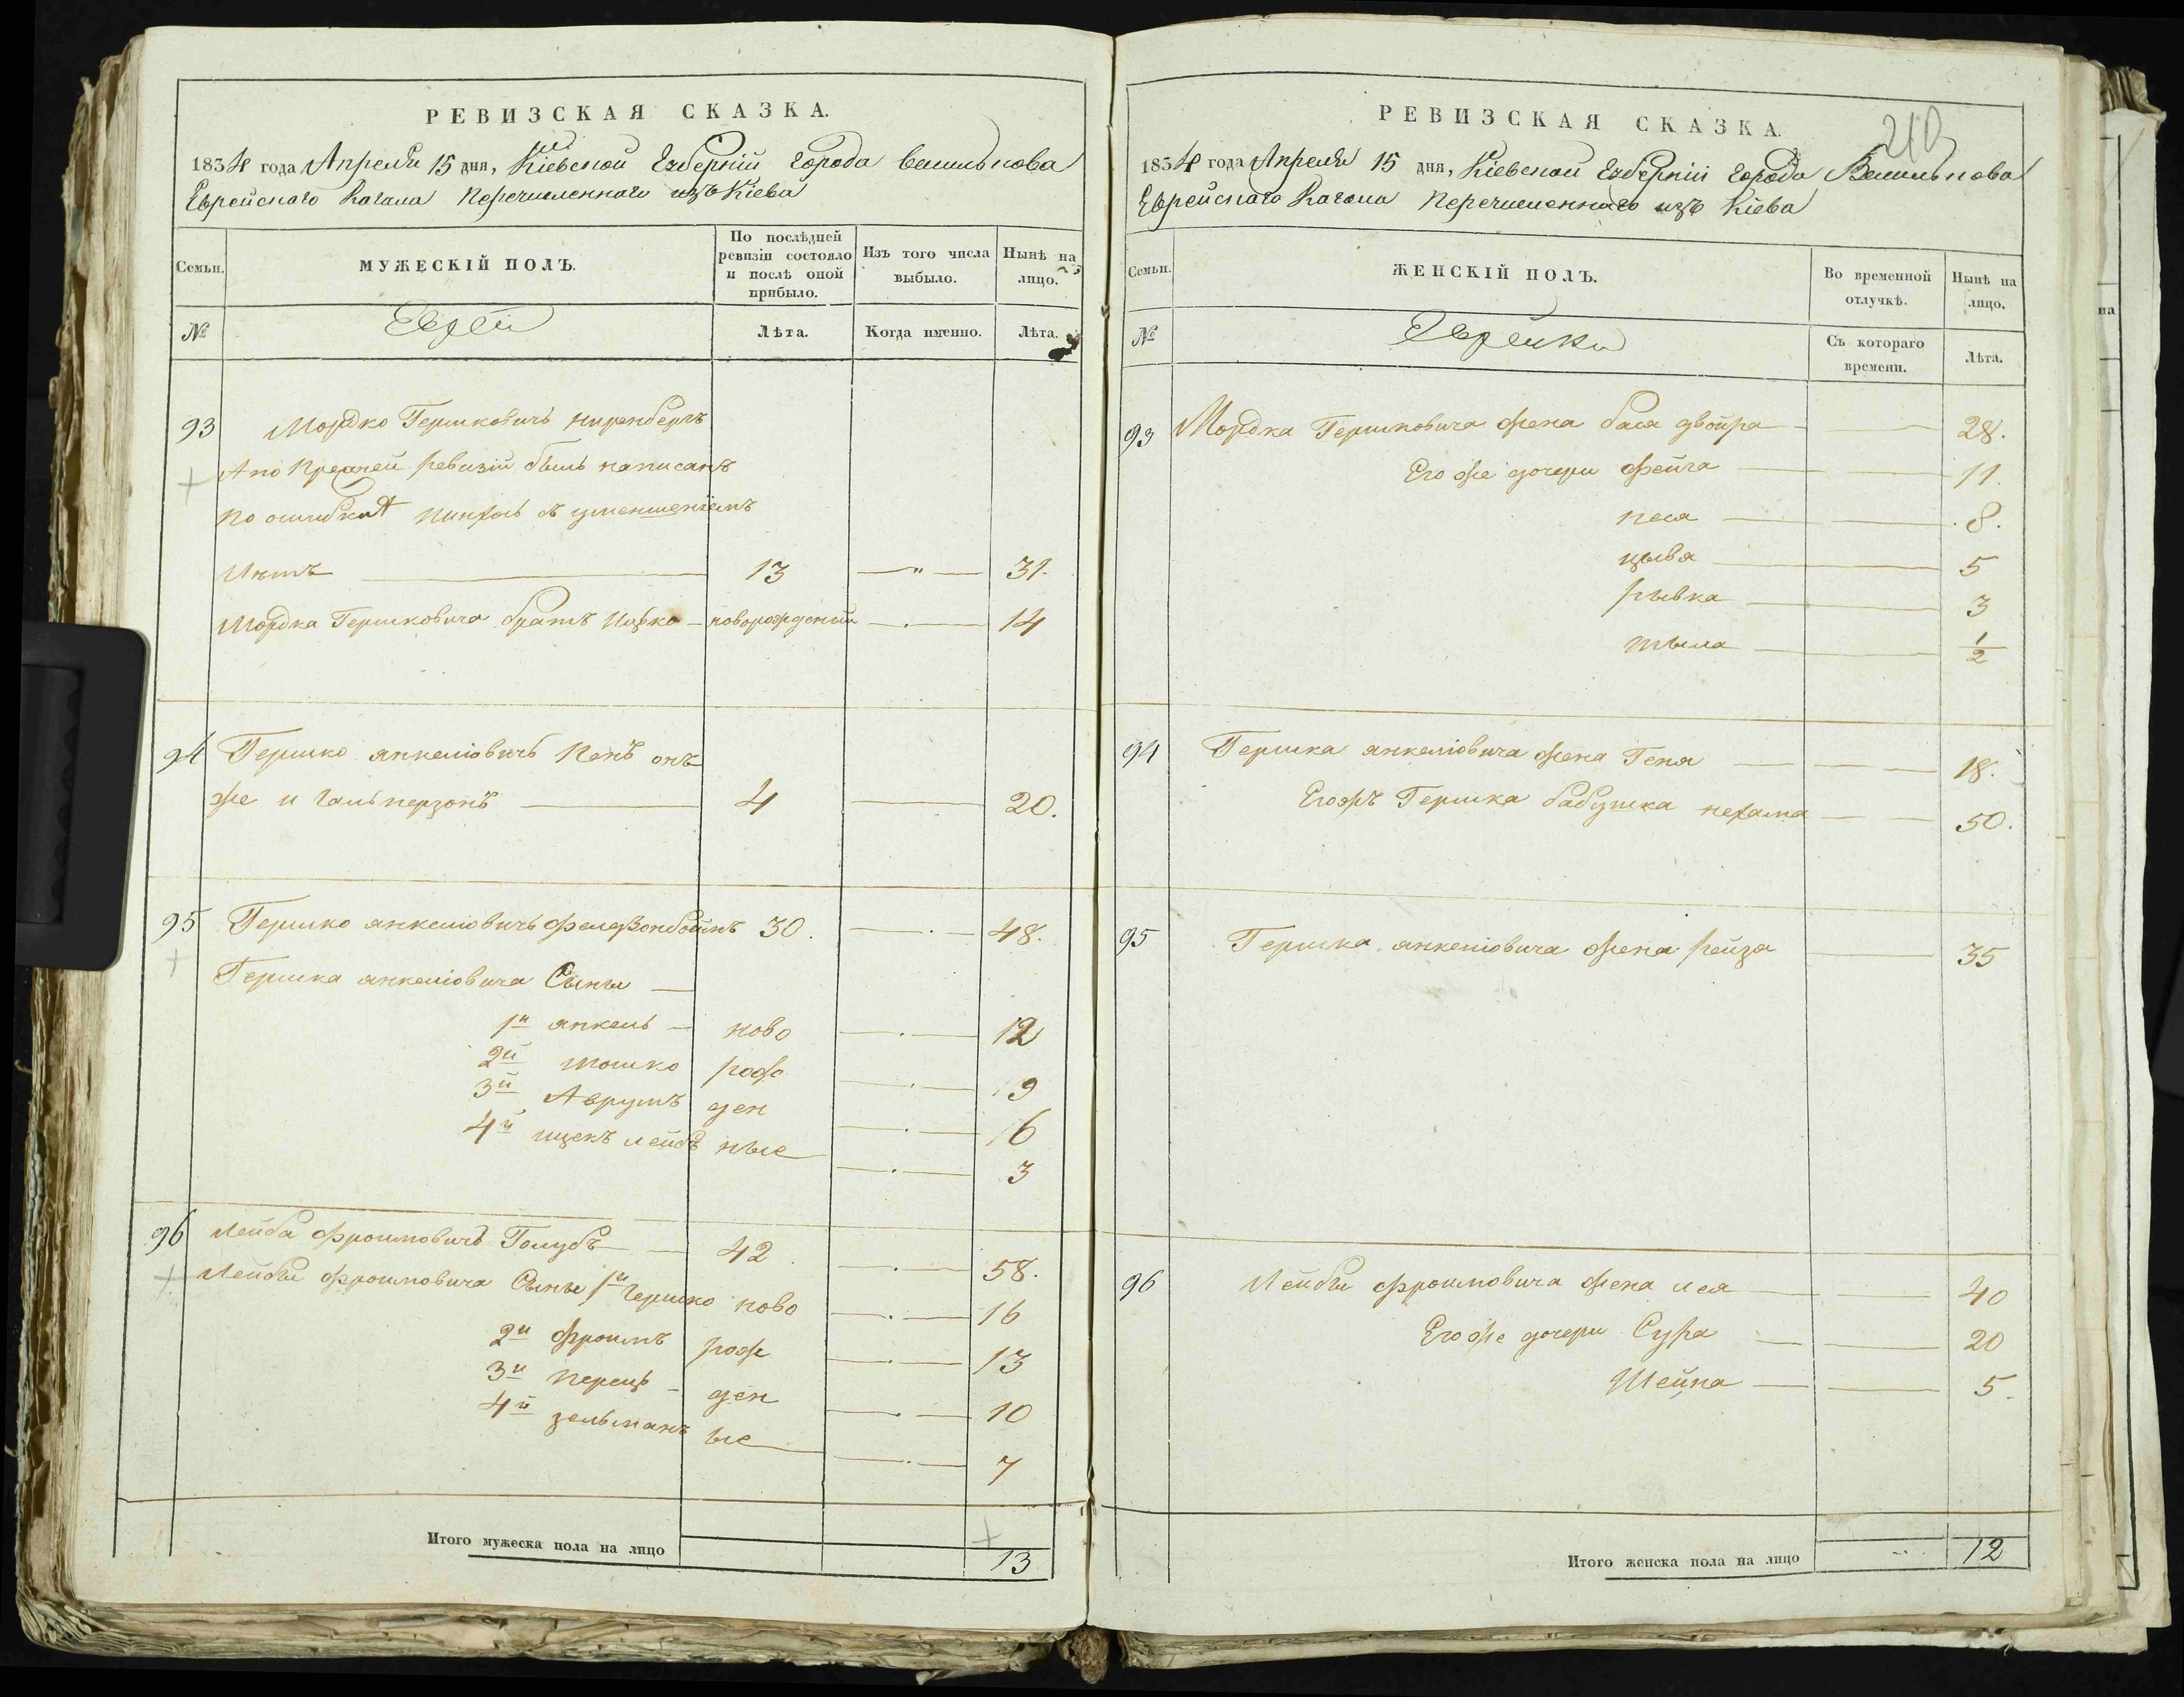 РЕВИЗСКАЯ СКАЗКА.
1834 года Апреля 15 дня, Кіевской Губерній города Василькова
Еврейскаго Кагала Перечисленнаго изъ Кіева
Семьи.
МУЖЕСКІЙ ПОЛЪ.
По послѣдней ревизіи состояло и послѣ оной прибыло.
Изъ того числа выбыло.
Нынѣ на лицо.
№
Евреи
Лѣта.
Когда именно.
Лѣта.
93 Мордко Гершковичъ Ниренбергъ
А по Прежней ревизіи былъ написанъ
по ошибки Пинхосъ съ уменшеніемъ
лѣтъ 13 — " — 31.
Мордка Гершковича братъ Ицко — новорожденый — 14
94 Гершко янкеліовичъ Кенъ онъ
же и Гальперзонъ 4 — 20.
95 Гершко янкеліовичъ 30. — 48.
Гершка янкеліовича Сыны —
1й янкель — ново — 12
2й Мошко рож — 9
3й Аврумъ ден — 6
4й ицекъ лейбъ ные — 3
96 Лейба Фроимовичъ Голубъ — 42 — 58.
Лейбы Фроимовича Сыны 1й Гершко ново — 16
2й Фроимъ рож — 13
3й Перецъ — ден — 10
4й зельманъ ые — 7
Итого мужеска пола на лицо 13
210
РЕВИЗСКАЯ СКАЗКА.
1834 года Апреля 15 дня, Кіевской Губерніи города Василькова
Еврейскаго Кагала Перечисленнаго изъ Кіева
Семьи.
ЖЕНСКІЙ ПОЛЪ.
Во временной отлучкѣ.
Нынѣ на лицо.
№
Еврейки
Съ котораго времени.
Лѣта.
93 Мордка Гершковича жена бася двойра — 28.
Его же дочери фейга — 11.
песя — 8.
цывя — 5
рывка — 3
тыла — 1/2
94 Гершка янкеліовича жена Геня — 18.
Егожъ Гершка бабушка нехама — 50.
95 Гершка янкеліовича жена рейза — 35
96 Лейбы Фроимовича жена лея — 40
Его же дочери Сура — 20
Шейна — 5.
Итого женска пола на лицо 12